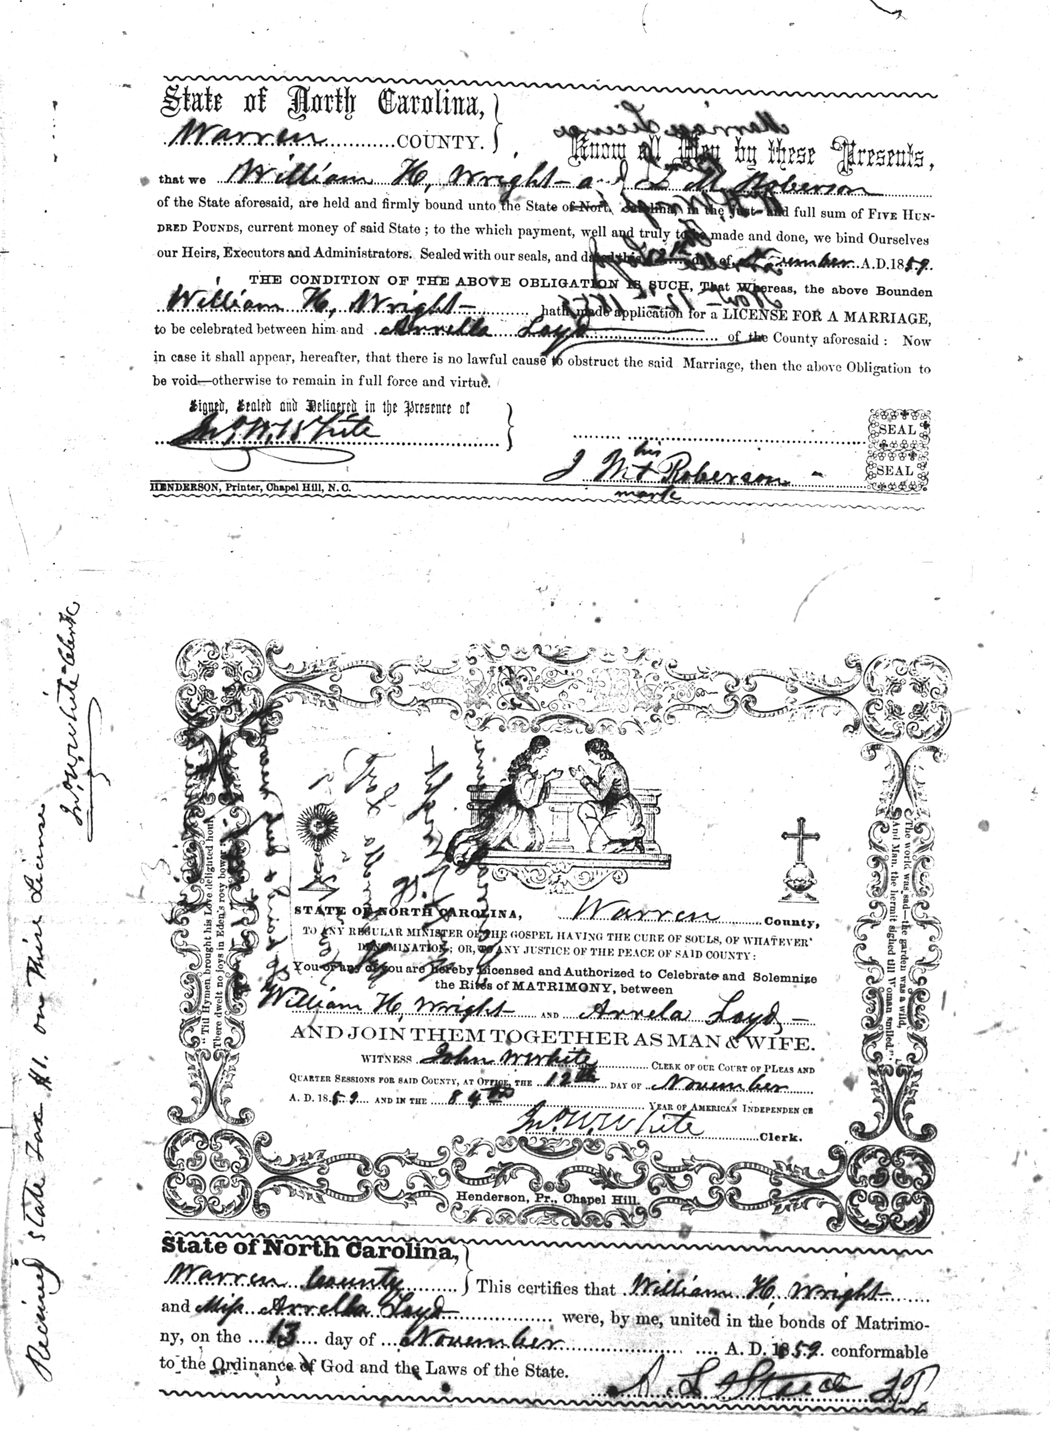 State of North Carolina,
Warren COUNTY.
Marriage License
Know all Men by these Presents,
that we William H, Wright M Roberson
of the State aforesaid, are held and firmly bound unto the State of North Carolina, in the just and full sum of FIVE HUN-
DRED POUNDS, current money of said State ; to the which payment, well and truly to be made and done, we bind Ourselves
our Heirs, Executors and Administrators. Sealed with our seals, and dated this 12th day of November A.D. 1859.
THE CONDITION OF THE ABOVE OBLIGATION IS SUCH, That Whereas, the above Bounden
William H, Wright hath made application for a LICENSE FOR A MARRIAGE,
to be celebrated between him and Arrella Loyd of the County aforesaid : Now
in case it shall appear, hereafter, that there is no lawful cause to obstruct the said Marriage, then the above Obligation to
be void—otherwise to remain in full force and virtue.
Signed, Sealed and Delivered in the Presence of
Jno, W. White
SEAL
his
J M + Roberson
SEAL
mark
HENDERSON, Printer, Chapel Hill, N. C.
Jno W White Clerk
Received State Tax $1. on this License
"Till Hymen brought his Love delighted hour,
There dwelt no joys in Eden's rosy bower
(The world was sad—the garden was a wild,
And Man, the hermit sighed till Woman smiled."
STATE OF NORTH CAROLINA, Warren County,
TO ANY REGULAR MINISTER OF THE GOSPEL HAVING THE CURE OF SOULS, OF WHATEVER
DENOMINATION; OR, TO ANY JUSTICE OF THE PEACE OF SAID COUNTY:
You or any of you are hereby Licensed and Authorized to Celebrate and Solemnize
the Rites of MATRIMONY, between
William H, Wright AND Arrela Loyd,
AND JOIN THEM TOGETHER AS MAN & WIFE.
WITNESS John W White CLERK OF OUR COURT OF PLEAS AND
QUARTER SESSIONS FOR SAID COUNTY, AT OFFICE, THE 12th DAY OF November
A. D. 1859 AND IN THE 84th YEAR OF AMERICAN INDEPENDENCE
Jno. W. White Clerk.
Henderson, Pr., Chapel Hill.
State of North Carolina,
Warren County This certifies that William H, Wright
and Miss Arrella Loyd were, by me, united in the bonds of Matrimo-
ny, on the 13 day of November A. D. 1859. conformable
to the Ordinance of God and the Laws of the State.
JP